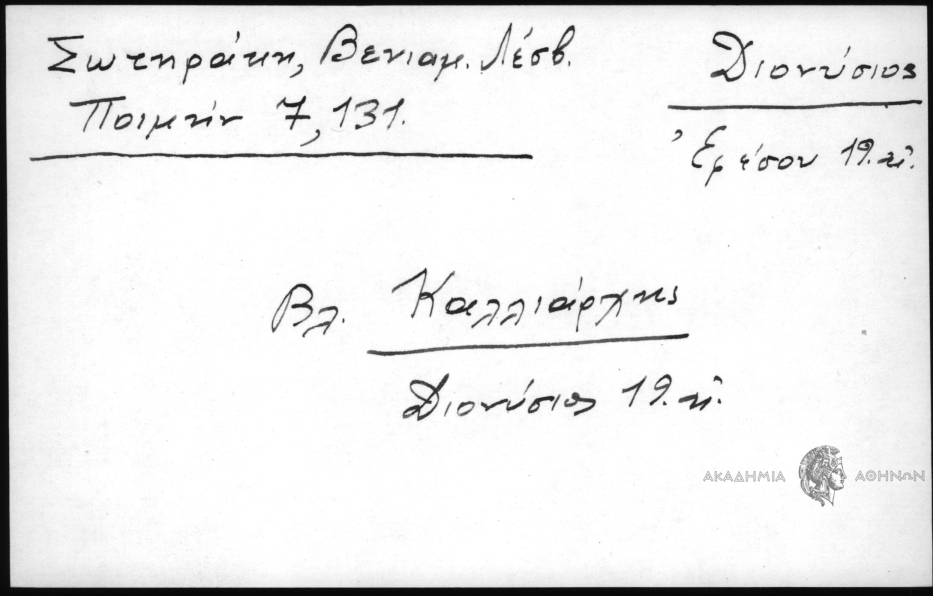 Σωτηράκη, Βενιαμ. Λέσβ.
Ποιμήν 7, 131.
Διονύσιος
Ἐρέσου 19. αἰ.
Βλ. Καλλιάρχης
Διονύσιος 19. αἰ.
ΑΚΑΔΗΜΙΑ ΑΘΗΝΩΝ